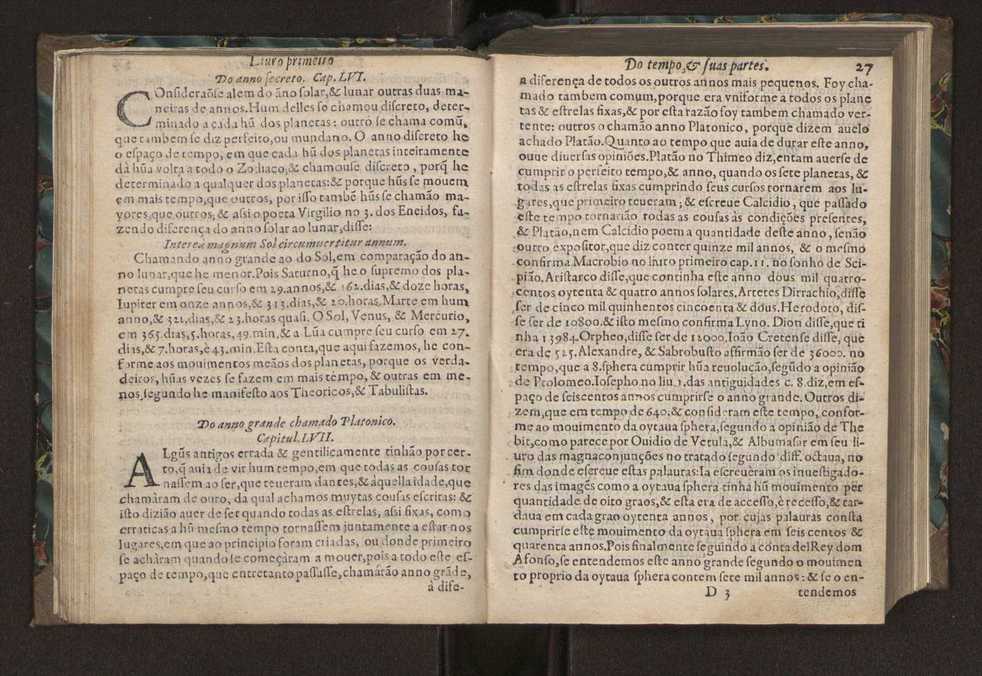 Liuro primeiro
Do anno secreto. Cap. LVI.
COnsideraõse alem do ãno solar,& lunar outras duas ma-
neiras de annos.Hum delles se chamou discreto, deter-
minado a cada hũ dos planetas: outro se chama comũ,
que tambem se diz perfeito,ou mundano. O anno discreto he
o espaço de tempo, em que cada hũ dos planetas inteiramente
dà hũa volta a todo o Zodiaco,& chamouse discreto , porq̃ he
determinado a qualquer dos planetas:& porque hũs se mouem
em mais tempo,que outros, por isso tambẽ hũs se chamão ma-
yores,que outros, & assi o poeta Virgilio no 3. dos Eneidos, fa-
zendo diferença do anno solar ao lunar,disse:
Interea magnum Sol circumuertitur annum.
Chamando anno grande ao do Sol,em comparação do an-
no lunar,que he menor.Pois Saturno,q̃ he o supremo dos pla-
netas cumpre seu curso em 29.annos,& 162.dias,& doze horas,
Iupiter em onze annos,& 313.dias,& 20.horas.Marte em hum
anno,& 321.dias,& 23.horas quasi. O Sol, Venus, & Mercurio,
em 365.dias,5.horas,49.min.& a Lũa cumpre seu curso em 27.
dias,& 7.horas,e 43.min.Esta conta,que aqui fazemos, he con-
forme aos mouimentos meãos dos planetas, porque os verda-
deiros, hũas vezes se fazem em mais tempo, & outras em me-
nos,segundo he manifesto aos Theoricos,& Tabulistas.
Do anno grande chamado Platonico.
Capitul.LVII.
ALgũs antigos errada & gentilicamente tinhão por cer-
to,q̃ auia de vir hum tempo,em que todas as cousas tor
nassem ao ser,que teueram dantes,& àquella idade,que
chamàram de ouro, da qual achamos muytas cousas escritas: &
isto dizião auer de ser quando todas as estrelas, assi fixas, como
erraticas a hũ mesmo tempo tornassem juntamente a estar nos
lugares,em que ao principio foram criadas, ou donde primeiro
se achàram quando se começàram a mouer,pois a todo este es-
paço de tempo,que entretanto passasse,chamàrão anno grãde,
à dife-
Do tempo,& suas partes. 27
a diferença de todos os outros annos mais pequenos. Foy cha-
mado tambem comum,porque era vniforme a todos os plane
tas & estrelas fixas,& por esta razão foy tambem chamado ver-
tente: outros o chamão anno Platonico, porque dizem auelo
achado Platão.Quanto ao tempo que auia de durar este anno,
ouue diuersas opiniões.Platão no Thimeo diz,entam auerse de
cumprir o perfeito tempo,& anno, quando os sete planetas, &
todas as estrelas fixas cumprindo seus cursos tornarem aos lu-
gares,que primeiro teueram ; & escreue Calcidio, que passado
este tempo tornarião todas as cousas às condições presentes,
& Platão,nem Calcidio poem a quantidade deste anno, senão
outro expositor,que diz conter quinze mil annos, & o mesmo
confirma Macrobio no liuro primeiro cap.11. no sonho de Sci-
pião.Aristarco disse,que continha este anno dous mil quatro-
centos oytenta & quatro annos solares.Artetes Dirrachio,disse
ser de cinco mil quinhentos cincoenta & dous.Herodoto, dis-
se ser de 10800.& isto mesmo confirma Lyno. Dion disse,que ti
nha 13984.Orpheo,disse ser de 12000.Ioão Cretense disse, que
era de 525.Alexandre, & Sabrobusto affirmão ser de 36000. no
tempo,que a 8.sphera cumprir hũa reuolução,segũdo a opinião
de Ptolomeo.Iosepho no liu.1.das antiguidades c. 8.diz,em es-
paço de seiscentos annos cumprirse o anno grande. Outros di-
zem,que em tempo de 640.& consideram este tempo, confor-
me ao mouimento da oytaua sphera,segundo a opinião de The
bit,como parece por Ouidio de Vetula,& Albumasar em seu li-
uro das magnaconjunções no tratado segundo diff. octaua, no
fim donde escreue estas palauras:Ia escreuèram os inuestigado-
res das imagẽs como a oytaua sphera tinha hũ mouimento per
quantidade de oito graos,& esta era de accesso,e recesso,& tar-
daua em cada grao oytenta annos , por cujas palauras consta
cumprirse este mouimento da oytaua sphera em seis centos &
quarenta annos.Pois finalmente seguindo a conta delRey dom
Afonso,se entendemos este anno grande segundo o mouimen
to proprio da oytaua sphera contem sete mil annos : & se o en-
D 3 tendemos